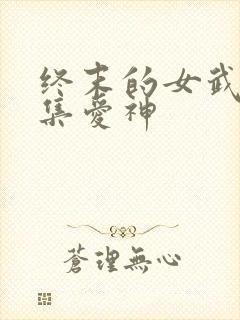 终末的女武
集爱神
蒼理無心